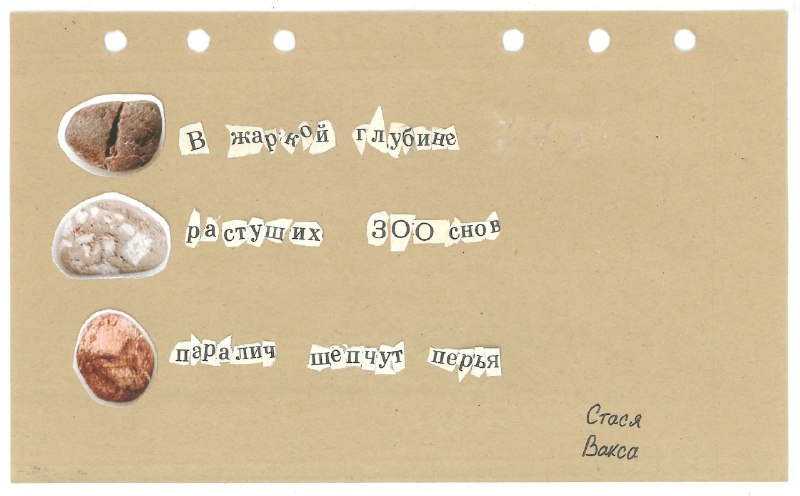 В жаркой глубине
растущих ЗОО снов
паралич шепчут перья
Стася
Вакса